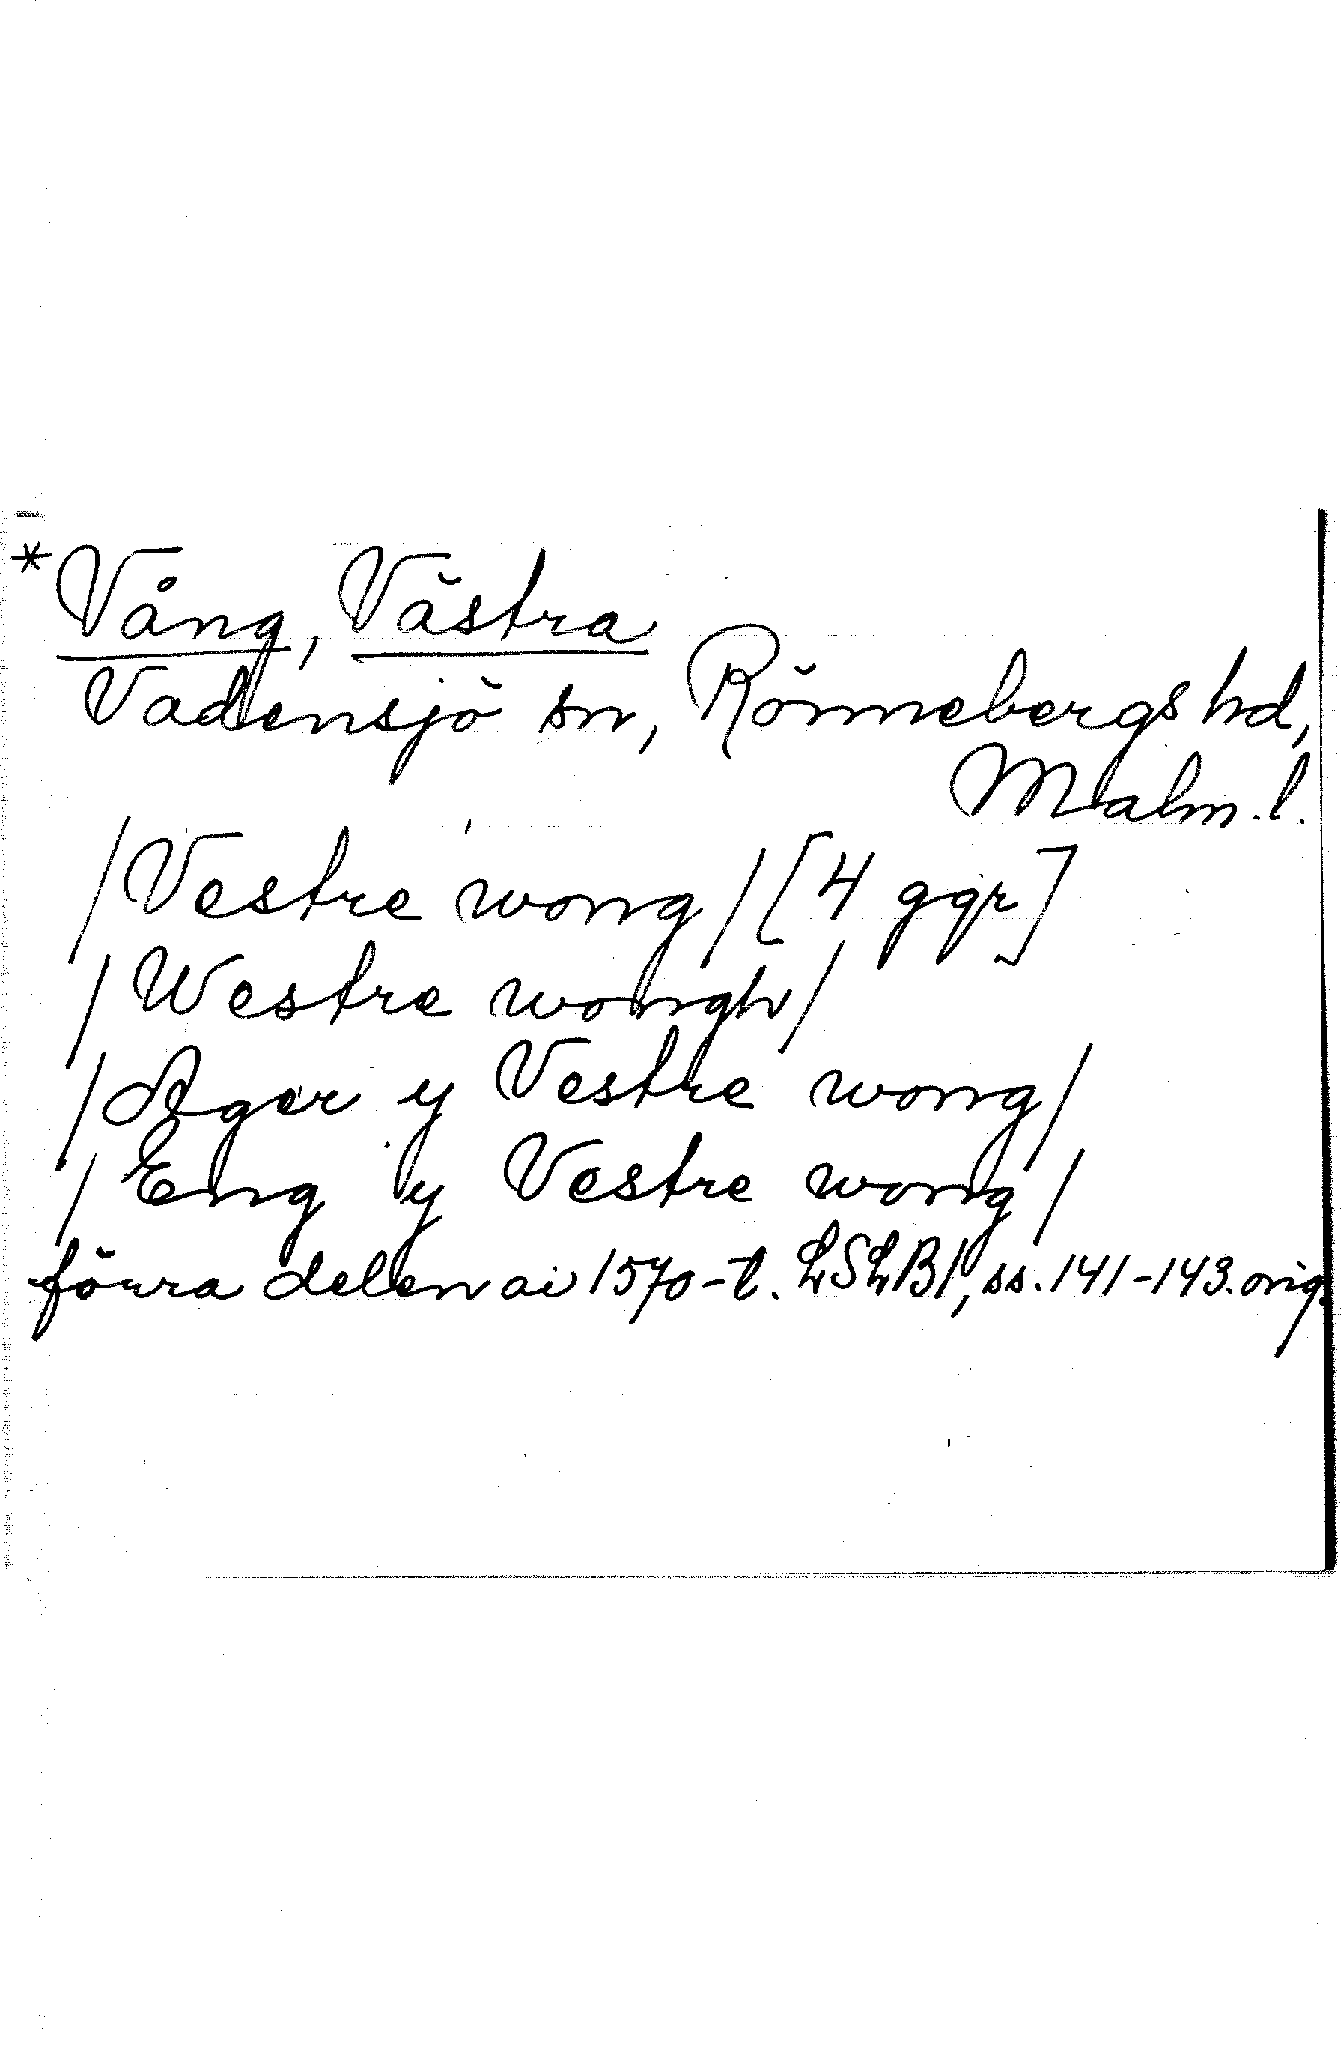 *Vång, Västra
Vadensjö sn, Rönnebergs hd,
Malm. l.
/Vestre wong/ [4 ggr]
/Westre wongh/
/Ager y Vestre wong/
/Eng y Vestre wong/
förra delen av 1570-t. LSLB1, ss. 141-143. orig.